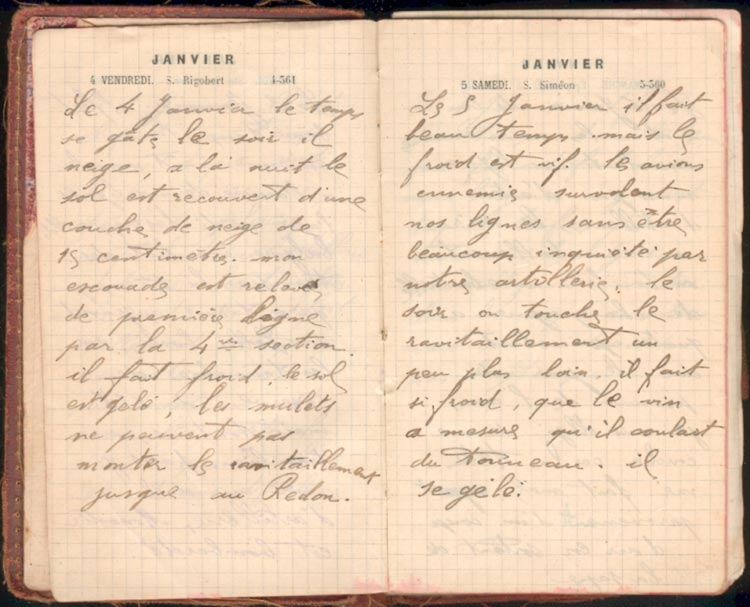 JANVIER
4 VENDREDI. S. Rigobert 4-361
Le 4 Janvier le temps
se gâte le soir il
neige, a la nuit le
sol est recouvert d'une
couche de neige de
15 centimètre. mon
escouade est relevé
de première ligne
par la 4me section.
il fait froid, le sol
est gelé, les mulets
ne peuvent pas
monter le ravitaillement
jusque au Redon.
JANVIER
5 SAMEDI. S. Siméon 5-360
Le 5 Janvier il fait
beau temps mais le
froid est vif. les avions
ennemis survolent
nos lignes sans être
beaucoup inquiété par
notre artillerie. le
soir on touche le
ravitaillement un
peu plus loin. il fait
si froid, que le vin
a mesure qu'il coulait
du tonneau. il
se gèle.